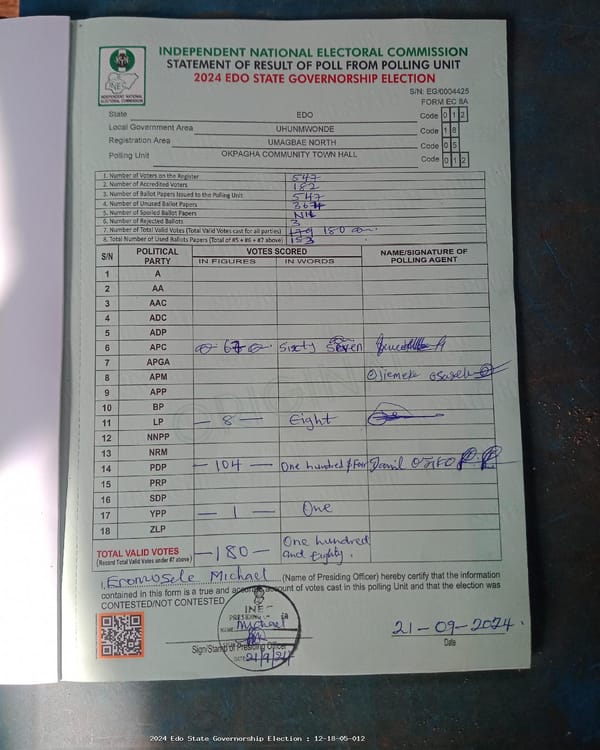 INDEPENDENT NATIONAL ELECTORAL COMMISSION
STATEMENT OF RESULT OF POLL FROM POLLING UNIT
2024 EDO STATE GOVERNORSHIP ELECTION
INDEPENDENT NATIONAL ELECTORAL COMMISSION
S/N: EG/0004425
FORM EC 8A
State EDO Code 0 1 2
Local Government Area UHUNMWONDE Code 1 8
Registration Area UMAGBAE NORTH Code 0 5
Polling Unit OKPAGHA COMMUNITY TOWN HALL Code 0 1 2
1. Number of Voters on the Register 547
2. Number of Accredited Voters 182
3. Number of Ballot Papers Issued to the Polling Unit 547
4. Number of Unused Ballot Papers
5. Number of Spoiled Ballot Papers Nil
6. Number of Rejected Ballots 3
7. Number of Total Valid Votes (Total Valid Votes cast for all parties) 180
8. Total Number of Used Ballots Papers (Total of #5 + #6 + #7 above)
S/N POLITICAL PARTY VOTES SCORED NAME/SIGNATURE OF POLLING AGENT
IN FIGURES IN WORDS
1 A
2 AA
3 AAC
4 ADC
5 ADP
6 APC 67 Sixty Seven
7 APGA
8 APM
9 APP
10 BP
11 LP - 8 - Eight
12 NNPP
13 NRM
14 PDP - 104 - One hundred
15 PRP
16 SDP
17 YPP - 1 - One
18 ZLP
TOTAL VALID VOTES - 180 - One hundred and eighty.
(Record Total Valid Votes under #7 above)
I, Eromosele Michael (Name of Presiding Officer) hereby certify that the information
contained in this form is a true and accurate account of votes cast in this polling Unit and that the election was
CONTESTED/NOT CONTESTED
INEC
Michael
21/9/24
Sign/Stamp of Presiding Officer
21-09-2024.
Date
2024 Edo State Governorship Election : 12-18-05-012